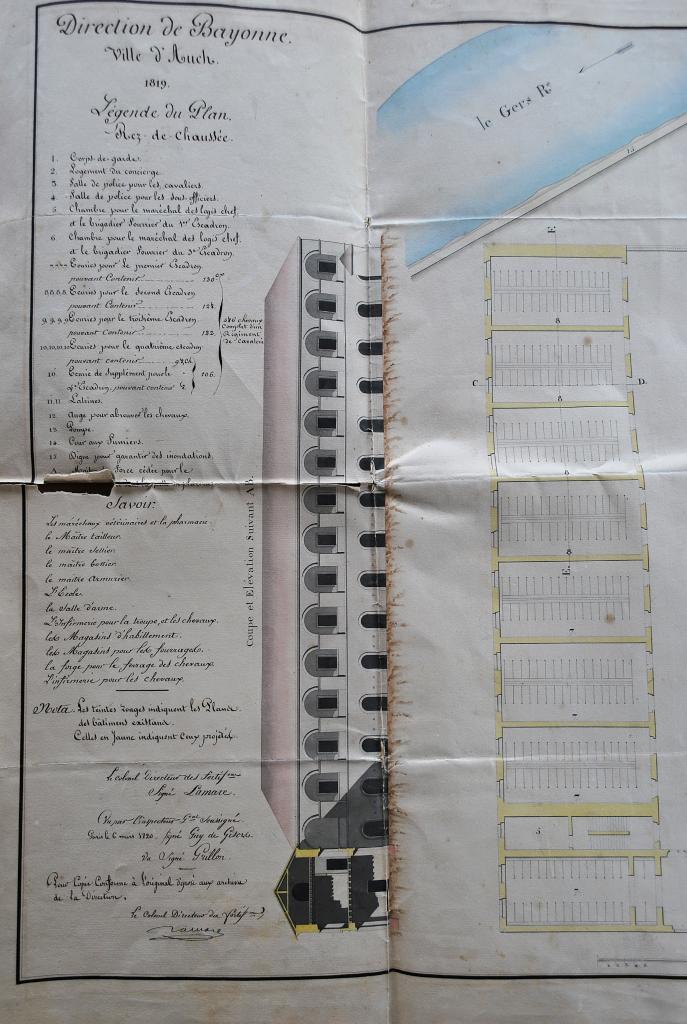 Direction de Bayonne.
Ville d'Auch.
1819.
Légende du Plan.
Rez-de-Chaussée.
1. Corps-de-garde.
2. Logement du concierge.
3. Salle de police pour les cavaliers.
4. Salle de police pour les sous-officiers.
5. Chambre pour le maréchal des logis chef,
et le brigadier Fourrier du 1er Escadron.
6. Chambre pour le maréchal des logis chef,
et le brigadier Fourrier du 3e Escadron.
7.7.7.7 Ecuries pour le premier Escadron
pouvant Contenir 130
8.8.8.8. Ecuries pour le second Escadron
pouvant Contenir 124.
9.9.9.9 Ecuries pour le troisième Escadron
pouvant Contenir 122.
10.10.10.10 Ecuries pour le quatrième escadron
pouvant contenir
10. Ecurie de Supplément pour le
4e Escadron, pouvant contenir
106.
chevaux
Complet d'un
Régiment
de cavalerie
11.11. Latrines.
12. Auge pour abreuver les chevaux.
13. Pompe.
14. Cour aux Fumiers.
15. Digue pour garantir des inondations.
Force cédée pour le
Savoir.
Les maréchaux vétérinaires et la pharmacie.
le Maître tailleur.
le maître Sellier.
le maître bottier.
le maître Armurier.
L'Ecole.
la Salle d'arme.
L'Infirmerie pour la troupe, et les chevaux.
les Magasins d'habillement.
les Magasins pour les fourrages.
la forge pour le ferrage des chevaux.
L'infirmerie pour les chevaux.
Nota. Les teintes rouges indiquent les Plans
des bâtimens existans.
Celles en Jaune indiquent Ceux projetés.
le Colonel Directeur des Fortif.ons
Signé Lamare.
Vu par l'inspecteur G.al Soussigné
Paris le 6 mars 1820. Signé Guy de Gisors
Vu Signé Grillon
Pour Copie Conforme à l'original déposé aux archives
de la Direction.
le Colonel Directeur des Fortif.
Lamare
Coupe et Elévation Suivant AB.
le Gers Re.
15
E.
8
8
C.
D.
8
8
8
E.
7
7
7
5
7